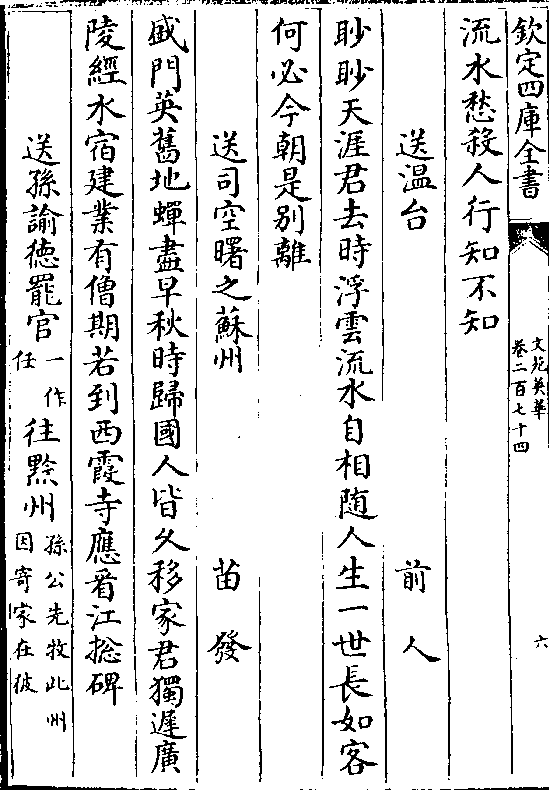 欽定四庫全書
文苑英華
卷二百七十四
六
流水愁殺人行知不知
送温台
前人
眇眇天涯君去時浮雲流水自相随人生一世長如客
何必今朝是别離
送司空曙之蘇州
苗發
盛門英舊地蟬盡早秋時歸國人皆久移家君獨遲廣
陵經水宿建業有僧期若到西霞寺應看江捴碑
送孫諭德罷官一作任往黔州孫公先牧此州因寄家在彼